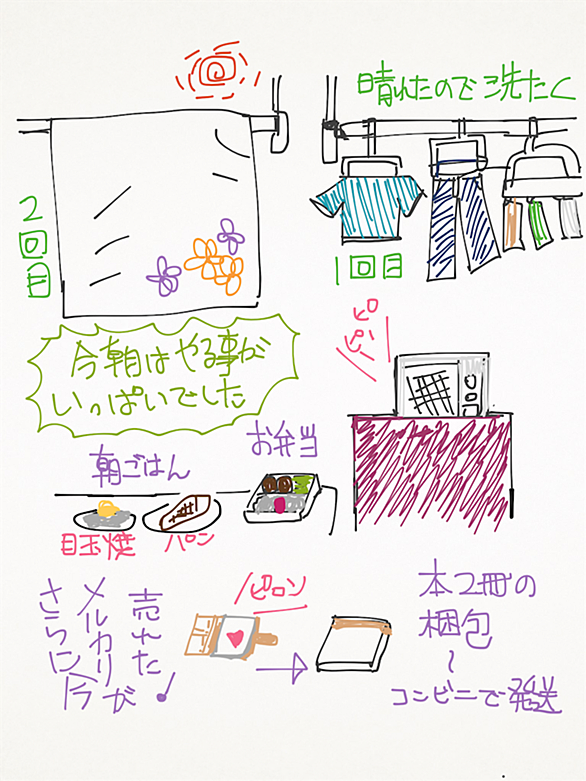 晴れたので洗たく
1回目
2回目
今朝はやる事が
いっぱいでした
ピピピッ
朝ごはん
お弁当
目玉焼
パン
さらに今
メルカリが
売れた!
ピロン
本2冊の
梱包
〜
コンビニで発送